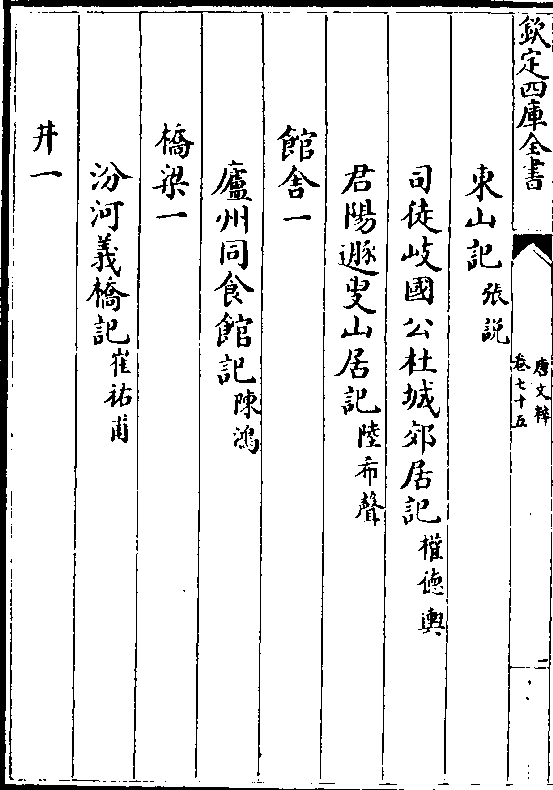 欽定四庫全書
唐文粹
卷七十五
東山記 張説
司徒岐國公杜城郊居記 權徳輿
君陽遯叟山居記 陸希聲
館舍一
廬州同食館記 陳鴻
橋梁一
汾河義橋記 崔祐甫
井一